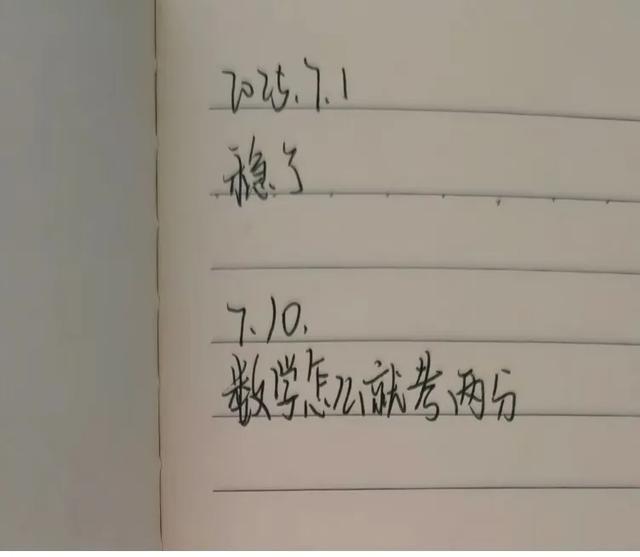 2025.7.1
稳了
7.10.
数学怎么就考两分